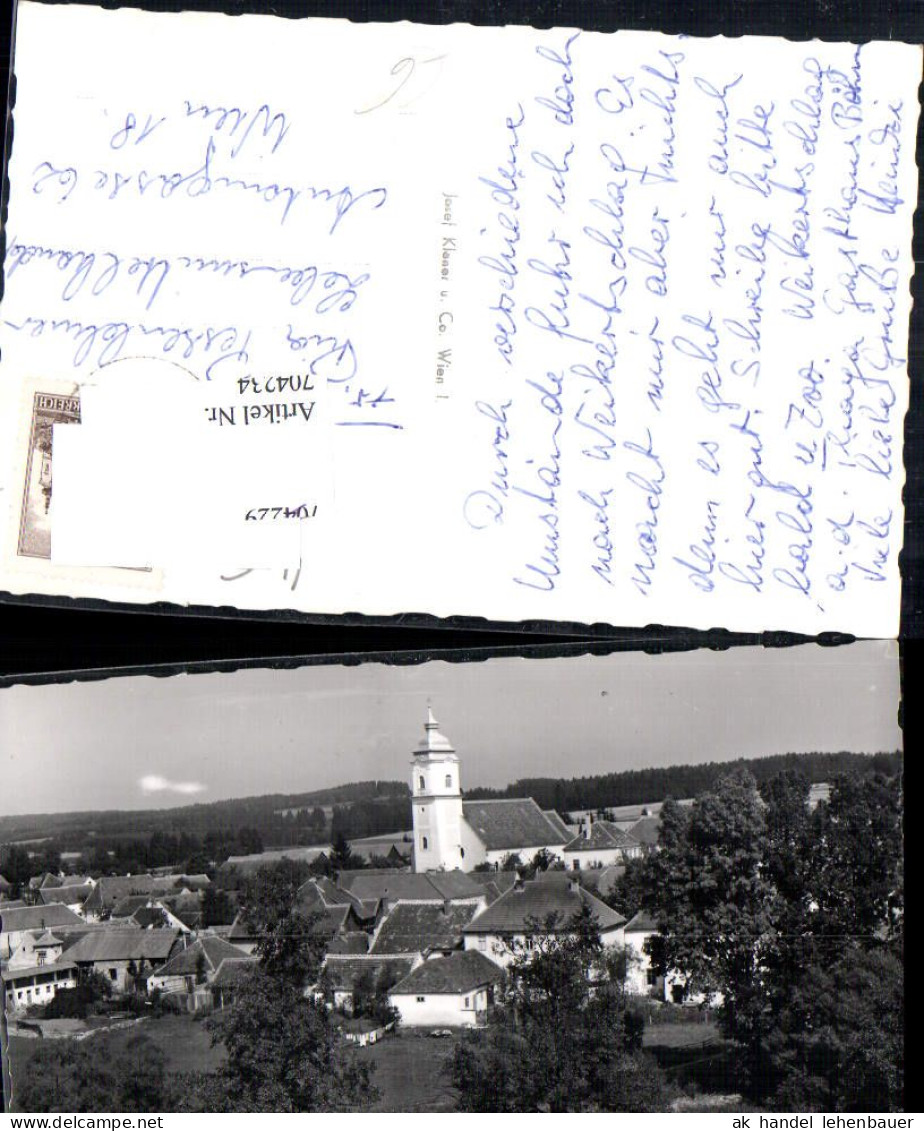 Durch verschiedene
Umstände fuhr ich doch
nach Weikertschlag. Es
macht mir aber nichts
denn es geht mir auch
hier gut. Schreibe bitte
bald u Zoo. Weikertschlag
a.d. Thaya Gasthaus Böhm
Viele liebe Grüße Heidi
Josef Klener u. Co. Wien I.
Fr.
Ria
Lebensmittelhandlg
Antonigasse 62
Wien 18.
REICH
Artikel Nr.
704234
704229
ak handel lehenbauer